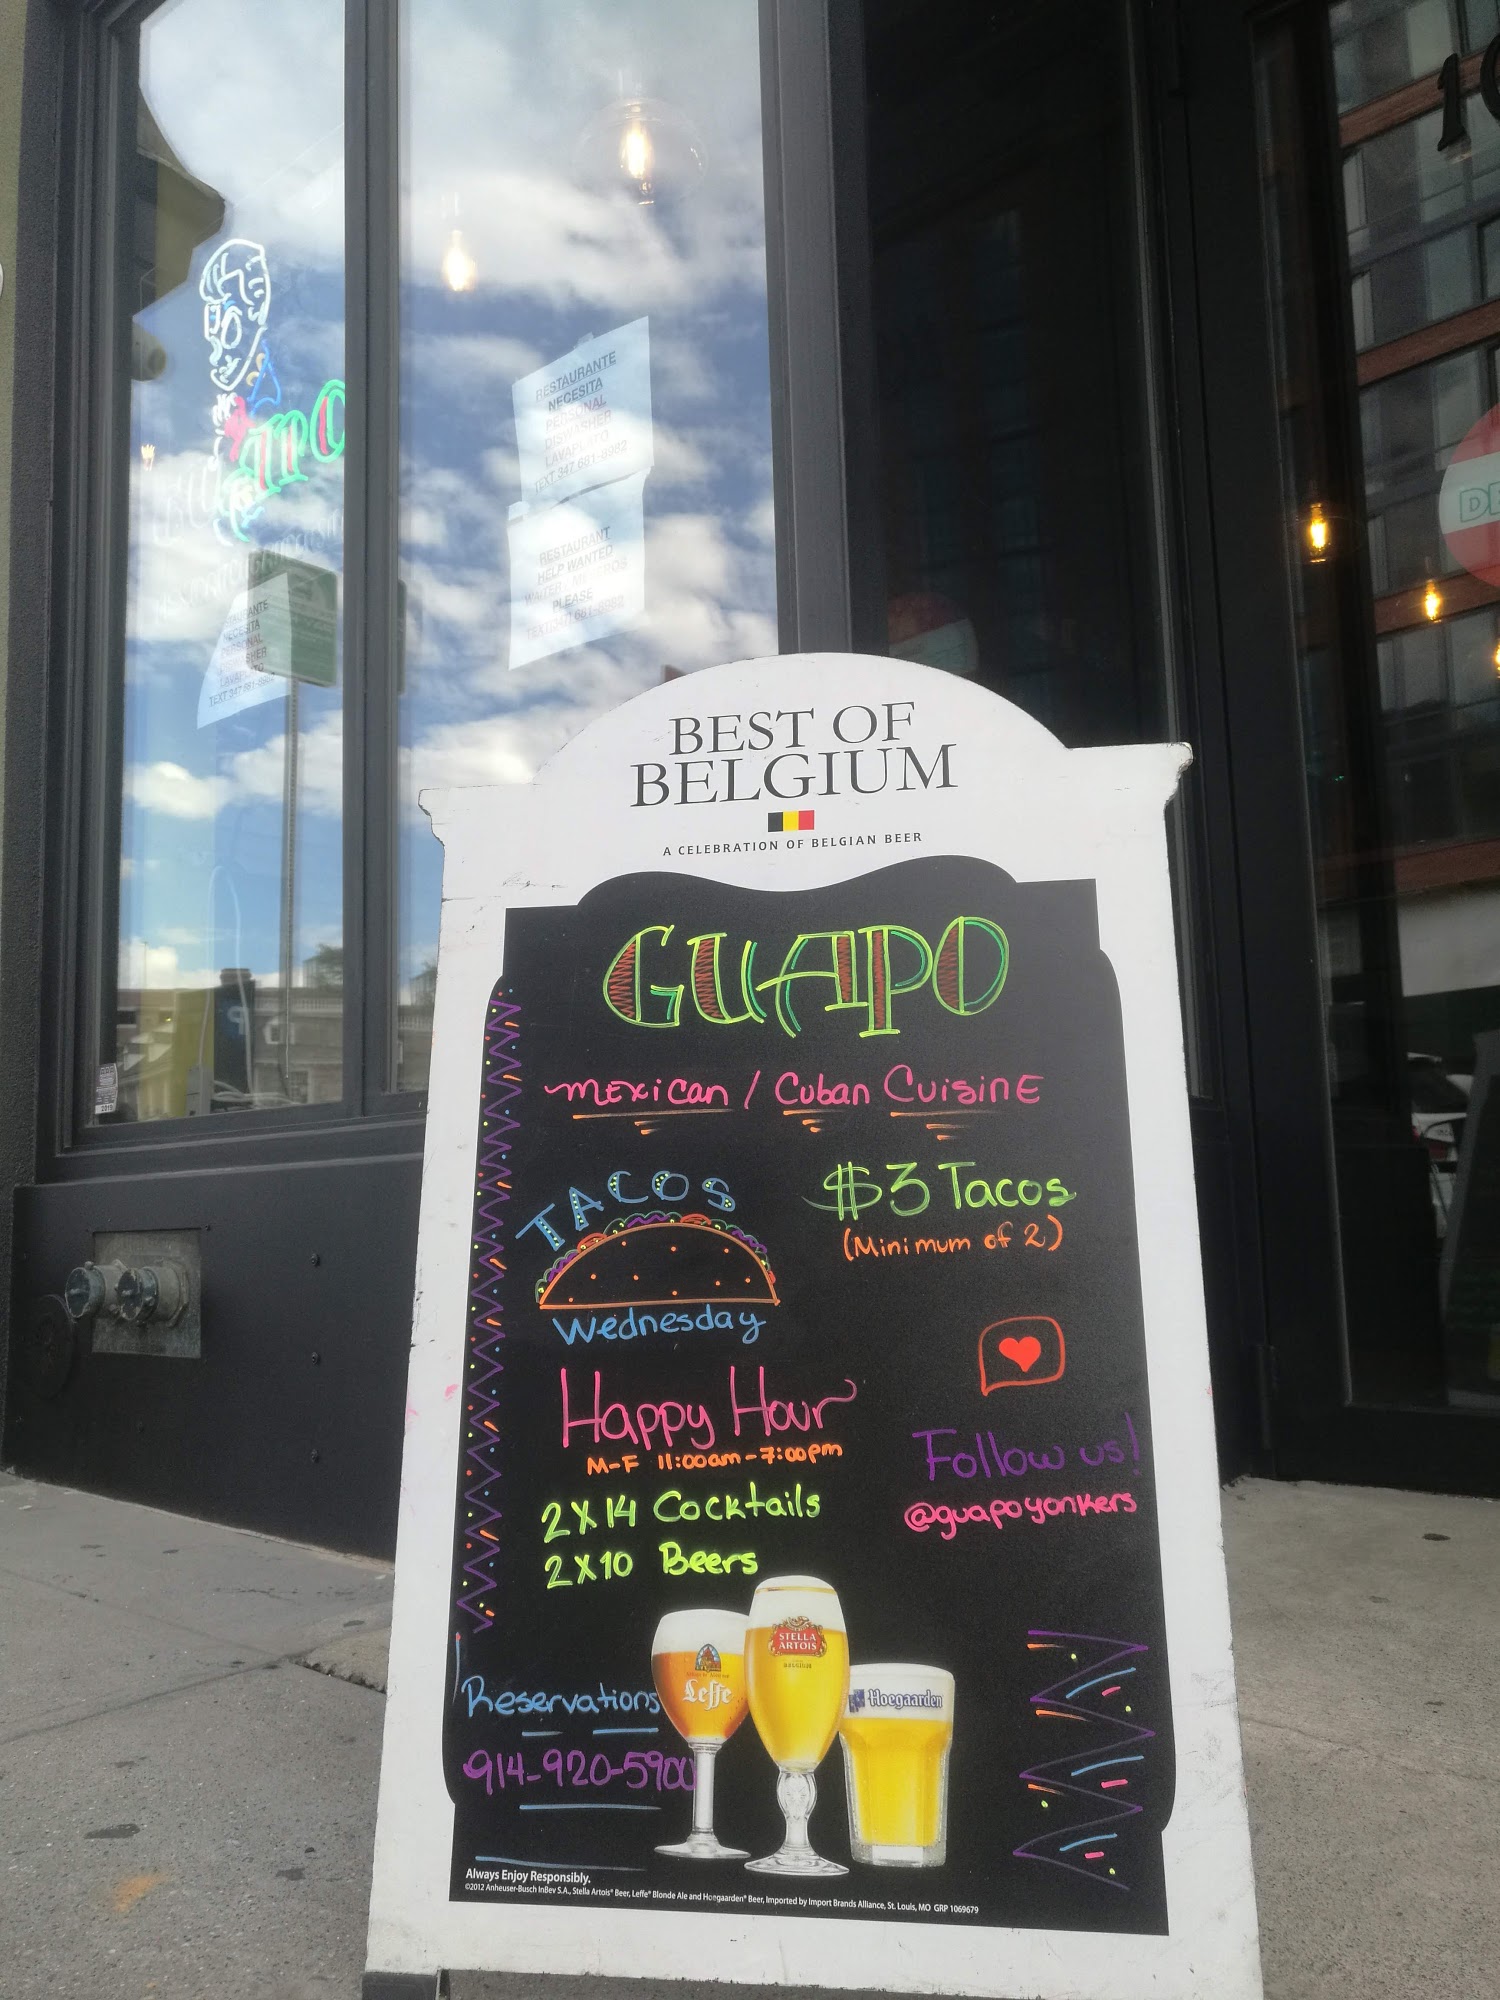 RESTAURANTE
NECESITA
PERSONAL
DISWASHER
LAVAPLATO
TEXT 347 681-8982
RESTAURANT
HELP WANTED
WAITER - MESEROS
PLEASE
TEXT(347) 681-8982
BEST OF
BELGIUM
A CELEBRATION OF BELGIAN BEER
GUAPO
Mexican / Cuban Cuisine
TACOS
Wednesday
$3 Tacos
(Minimum of 2)
Happy Hour
M-F 11:00am-7:00pm
2X14 Cocktails
2X10 Beers
Follow us!
@guapoyonkers
Reservations
914-920-5900
Leffe
STELLA
ARTOIS
Hoegaarden
Always Enjoy Responsibly.
©2012 Anheuser-Busch InBev S.A., Stella Artois® Beer, Leffe® Blonde Ale and Hoegaarden® Beer, Imported by Import Brands Alliance, St. Louis, MO GRP 1069679